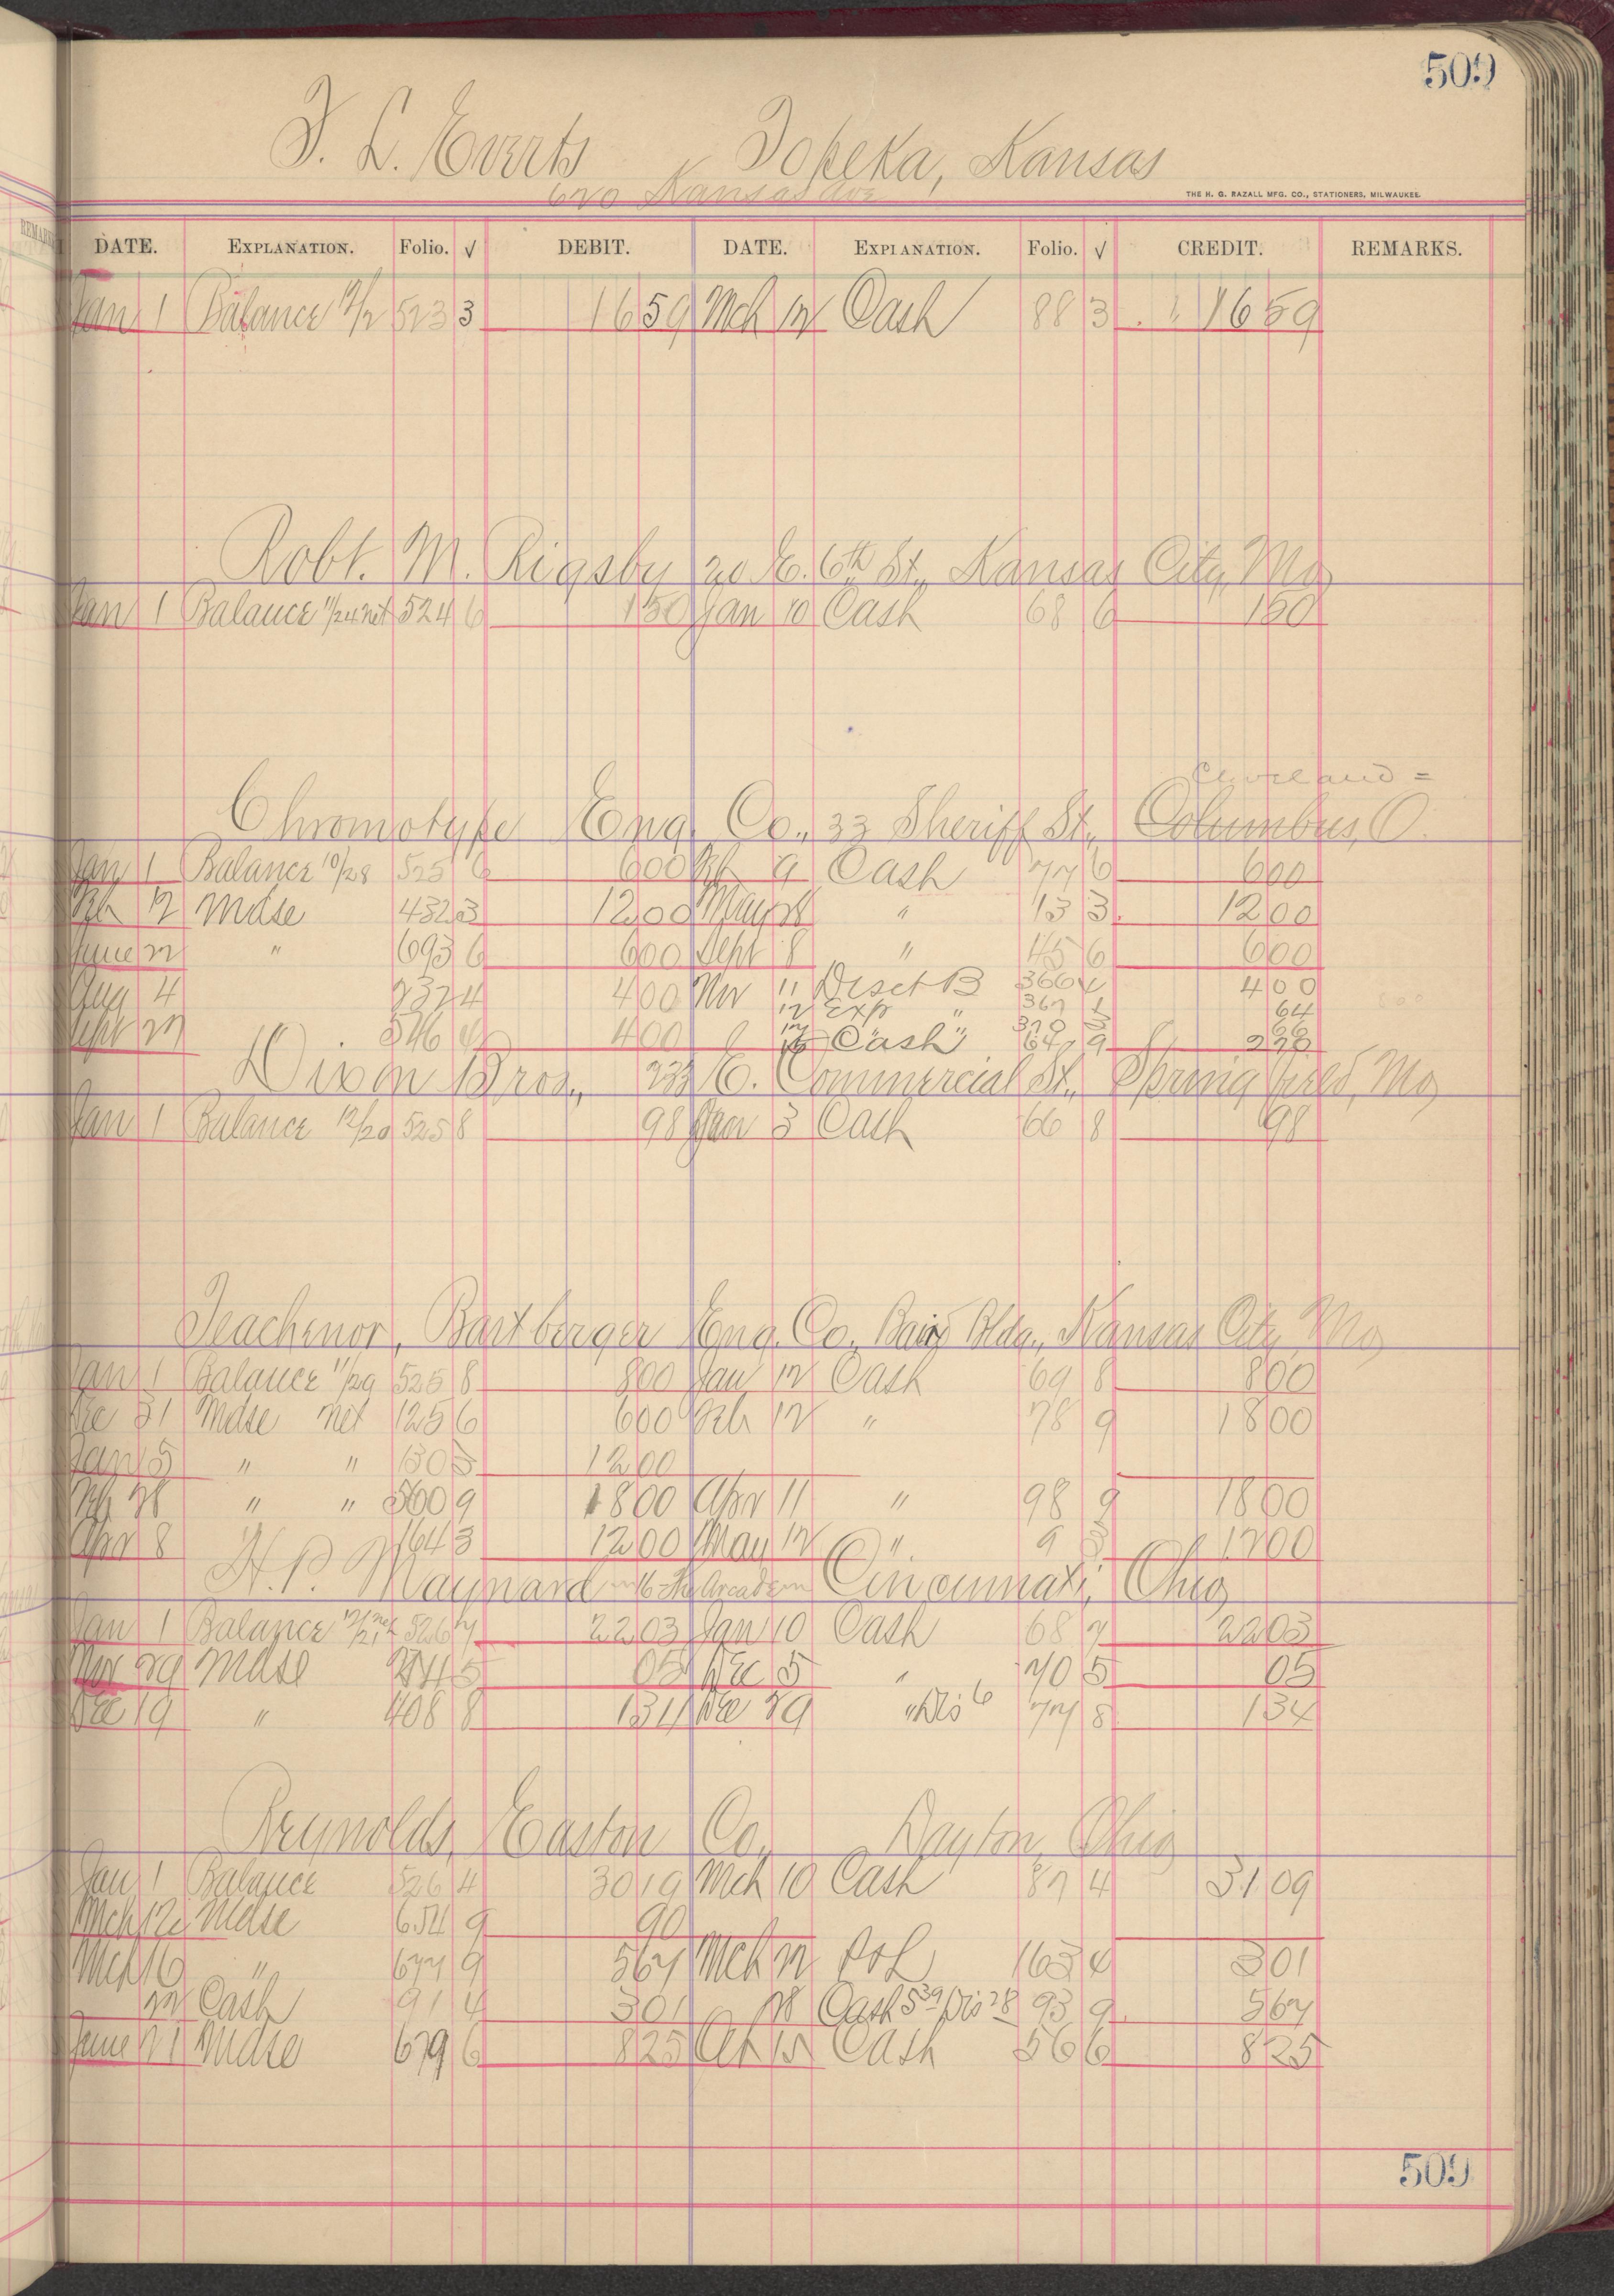 509
F. L. Everts Topeka, Kansas
620 Kansas Ave
THE H. G. RAZALL MFG. CO., STATIONERS, MILWAUKEE.
DATE. EXPLANATION. Folio. √ DEBIT. DATE. EXPLANATION. Folio. √ CREDIT. REMARKS.
Jan 1 Balance 523 3 1659 Mch 12 Cash 88 3 1659
Robt. M. Rigsby 20 E. 6th St., Kansas City, Mo
Jan 1 Balance 11/24 net 524 6 150 Jan 10 Cash 68 6 150
Cleveland =
Chromotype Eng. Co., 33 Sheriff St., Columbus, O.
Jan 1 Balance 10/28 525 6 600 Feb 9 Cash 77 6 600
Feb 12 Mdse 432 3 1200 May 28 " 13 3 1200
June 22 " 693 6 600 Sept 8 " 45 6 600
Aug 4 232 4 400 Nov 11 Desct B 366 4 400
12 Exp " 367 64
Sept 27 546 4 400 Cash " 64 9
Dixon Bros., 233 E. Commercial St., Springfield, Mo
Jan 1 Balance 12/20 525 8 98 Jan 3 Cash 66 8 98
Teachenor, Bartberger Eng. Co. Baird Bldg., Kansas City, Mo
Jan 1 Balance 11/29 525 8 800 Jan 12 Cash 69 8 800
Dec 31 Mdse net 125 6 600 Feb 12 " 78 9 1800
Jan 5 " " 130 3 1200
Feb 28 " " 560 9 1800 Apr 11 " 98 9 1800
Apr 8 164 3 1200 May 12 " 9 3 1200
H. P. Maynard 16 The Arcade Cincinnati, Ohio
Jan 1 Balance 12/21 net 526 7 2203 Jan 10 Cash 68 7 2203
Nov 29 Mdse 05 Dec 5 " 70 5 05
Dec 19 " 408 8 134 Dec 29 " Dis 6 77 8 134
Reynolds, Easton Co., Dayton, Ohio
Jan 1 Balance 526 4 3019 Mch 10 Cash 87 4 3109
Mch 12 Mdse 654 9 90
Mch 16 " 677 9 567 Mch 22 P&L 163 4 301
22 Cash 91 4 301 28 Cash 539 Dis 28 93 9 567
June 21 Mdse 679 6 825 Oct 15 Cash 56 6 825
509